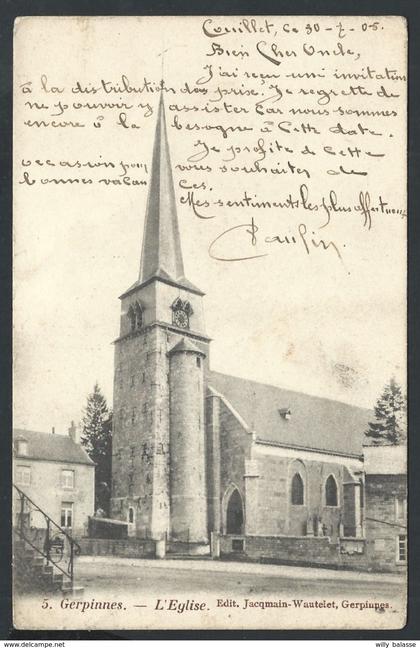 Couillet, ce 30-7-05
Bien Cher Oncle,
J'ai reçu une invitation
à la distribution des prise. Je regrette de
ne pouvoir y assister car nous sommes
encore à la besogne à cette date.
Je profite de cette
occasion pour vous souhaiter de
bonnes vacances.
Mes sentiments les plus affectueux
Paulin.
5. Gerpinnes. — L'Eglise. Edit. Jacqmain-Wautelet, Gerpinnes.
www.delcampe.net
willy balasse